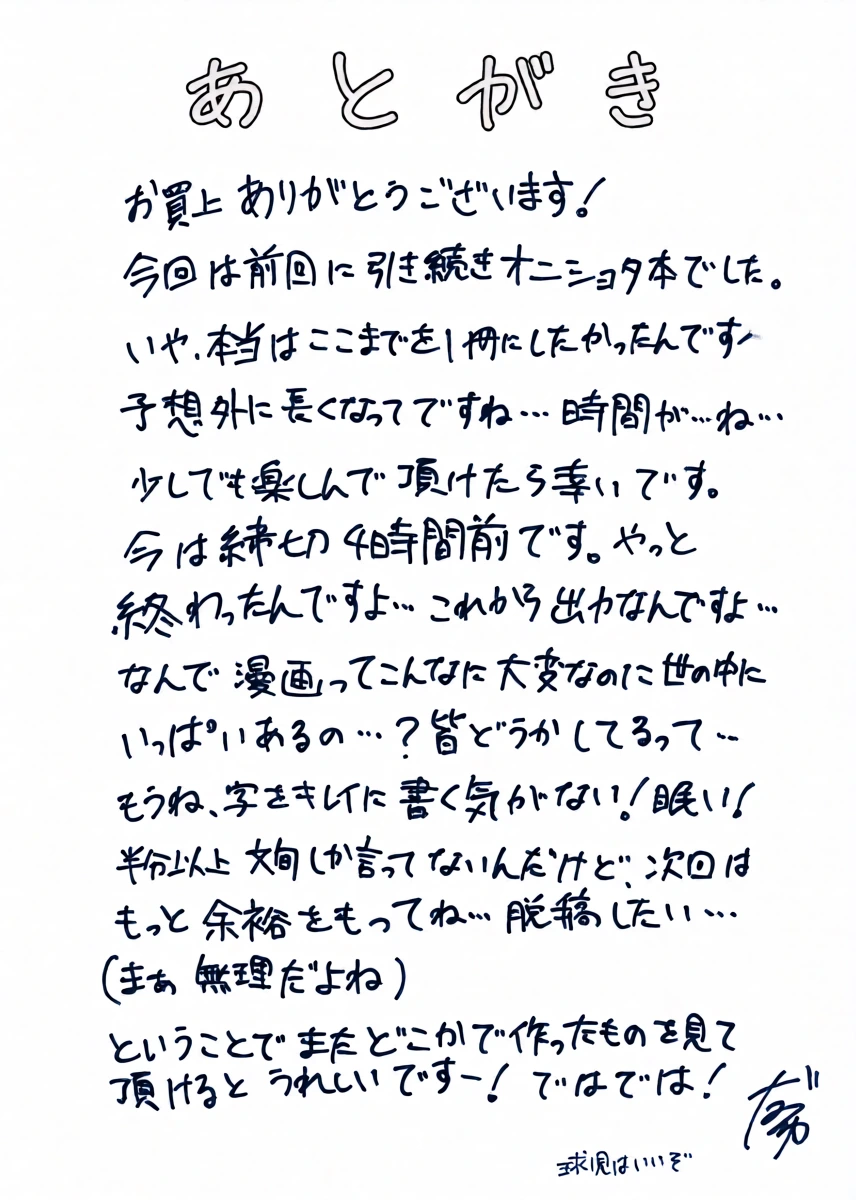 あとがき
お買上 ありがとうございます!
今回は前回に引き続きオニショタ本でした。
いや、本当はここまでを1冊にしたかったんです
予想外に長くなってですね…時間が…ね…
少しでも楽しんで頂けたら幸いです。
今は締切4時間前です。やっと
終わったんですよ…これから出力なんですよ…
なんで漫画ってこんなに大変なのに世の中に
いっぱいあるの…?皆どうかしてるって…
もうね、字をキレイに書く気がない!眠い!
半分以上 文句しか言ってないんだけど、次回は
もっと余裕をもってね…脱稿したい…
(まぁ無理だよね)
ということでまたどこかで作ったものを見て
頂けるとうれしいですー!ではでは!
球児はいいぞ